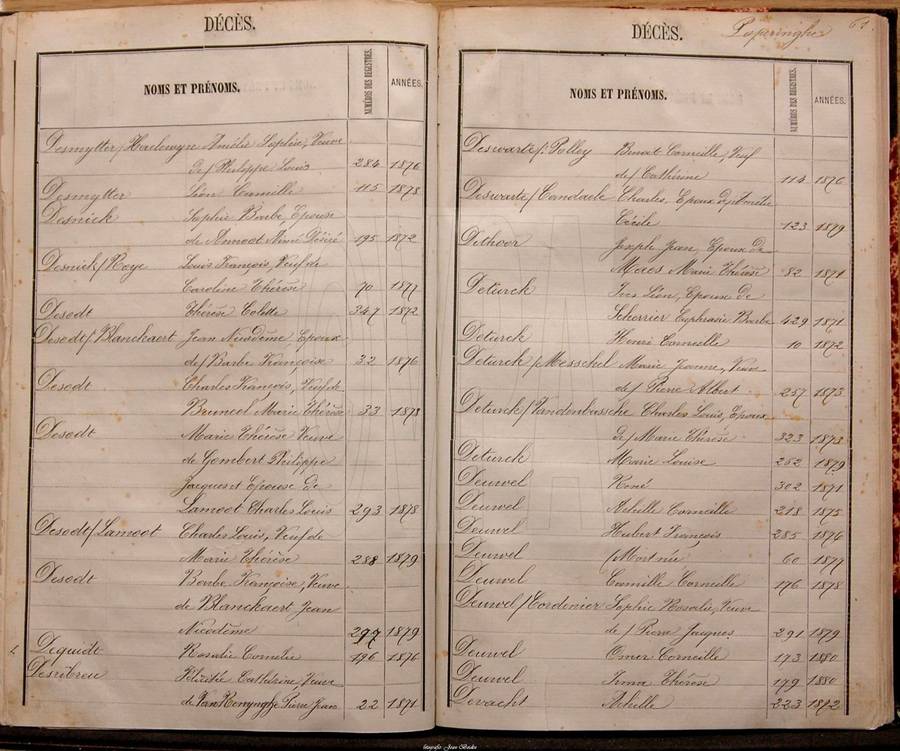 DÉCÈS.
NOMS ET PRÉNOMS.
NUMÉROS DES REGISTRES.
ANNÉES.
Desmytter/Haelewyn Amélie Sophie, Veuve
de/ Philippe Louis 284 1876
Desmytter Léon Camille 115 1878
Desnick Sophie Barbe, Epouse
de Annoot Aimé Désiré 195 1872
Desnick/Roye Louis François, Veuf de
Caroline Thérèse 70 1877
Desodt Thérèse Colette 347 1872
Desodt/Blanckaert Jean Nicodème Epoux
de/ Barbe Françoise 32 1876
Desodt Charles François, Veuf de
Bruneel Marie Thérèse 33 1878
Desodt Marie Thérèse Veuve
de Gombert Philippe
Jacques et Epouse de
Lamoot Charles Louis 293 1878
Desodt/Lamoot Charles Louis, Veuf de
Marie Thérèse 288 1879
Desodt Barbe Françoise, Veuve
de Blanckaert Jean
Nicodème 297 1879
Deguidt Rosalie Cornelie 196 1876
Félicité Catherine, Veuve
de Van Renynghe Pierre Jean 22 1871
DÉCÈS.
Poperinghe 61.
NOMS ET PRÉNOMS.
NUMÉROS DES REGISTRES.
ANNÉES.
Deswarte/Polley Benoit Corneille, Veuf
de/ Catherine 114 1876
Deswarte/Candaele Charles, Epoux de/ Amélie
Cécile 123 1879
Dethoor Joseph Jean, Epoux de
Maes Marie Thérèse 82 1871
Deturck Ives Léon, Epoux de
Scherrier Euphrasie Barbe 429 1871
Deturck Henri Corneille 10 1872
Deturck/Messchel Marie Jeanne, Veuve
de/ Pierre Albert 257 1873
Deturck/Vandenbussche Charles Louis, Epoux
de/ Marie Thérèse 323 1873
Deturck Marie Louise 252 1879
Deuwel René 302 1871
Deuwel Achille Corneille 218 1875
Deuwel Hubert François 285 1876
Deuwel (Mort née 60 1877
Deuwel Camille Corneille 176 1878
Deuwel/Cordenier Sophie Rosalie, Veuve
de/ Pierre Jacques 291 1879
Deuwel Omer Corneille 173 1880
Deuwel Irma Thérèse 179 1880
Devacht Achille 223 1872
fotografie Jean Beckx